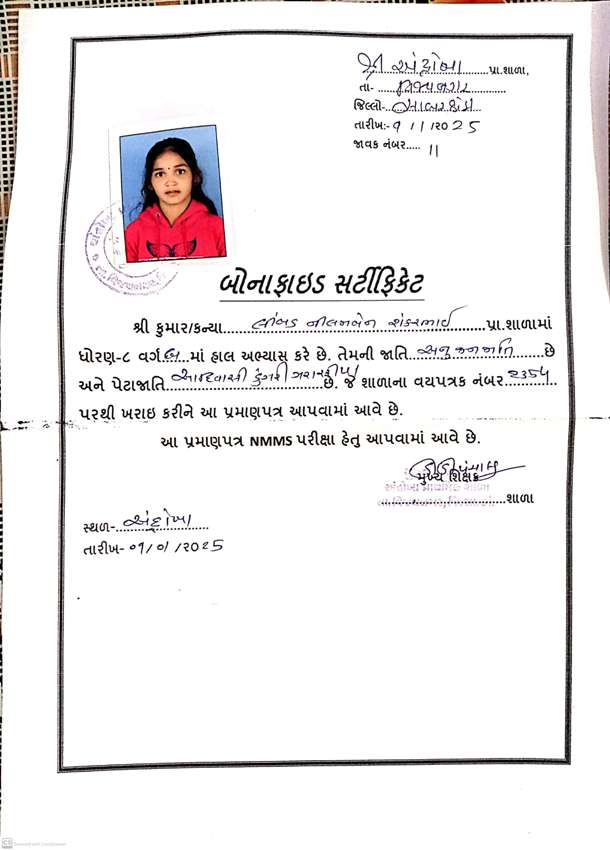 શ્રી અંદ્રોખા પ્રા.શાળા,
તા- વિજયનગર
જિલ્લો:- સાબરકાંઠા
તારીખ:- ૧/૧/૨૦૨૫
જાવક નંબર..... ૧૧
બોનાફાઇડ સર્ટીફિકેટ
શ્રી કુમાર/કન્યા નીલમબેન શંકરભાઈ પ્રા.શાળામાં
ધોરણ-૮ વર્ગ બ માં હાલ અભ્યાસ કરે છે. તેમની જાતિ અનુ જનજાતિ છે
અને પેટાજાતિ આદિવાસી ડુંગરી ગરાસીયા છે. જે શાળાના વયપત્રક નંબર ૨૩૫૪
પરથી ખરાઇ કરીને આ પ્રમાણપત્ર આપવામાં આવે છે.
આ પ્રમાણપત્ર NMMS પરીક્ષા હેતુ આપવામાં આવે છે.
મુખ્ય શિક્ષક
શાળા
સ્થળ- અંદ્રોખા
તારીખ- ૦૧/૦૧/૨૦૨૫